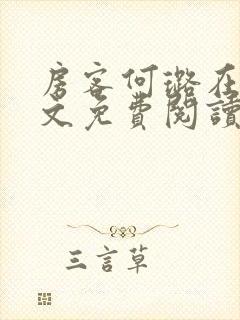 房客何璐在
文免費閱讀
三言草